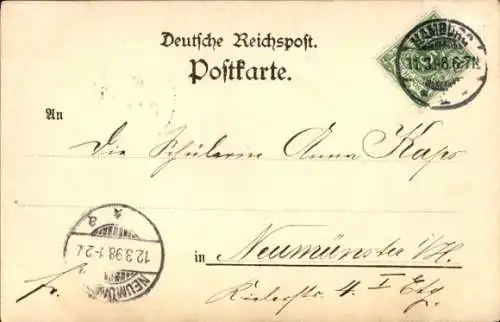 Deutsche Reichspost.
Postkarte.
HAMBURG
11.3.98.6-7N.
An
Die Schülerin Anna Kaps
in Neumünster i/H.
Kielerstr. 4. I Etg.
fr.
NEUMÜNSTER
12.3.98.1-2N
a